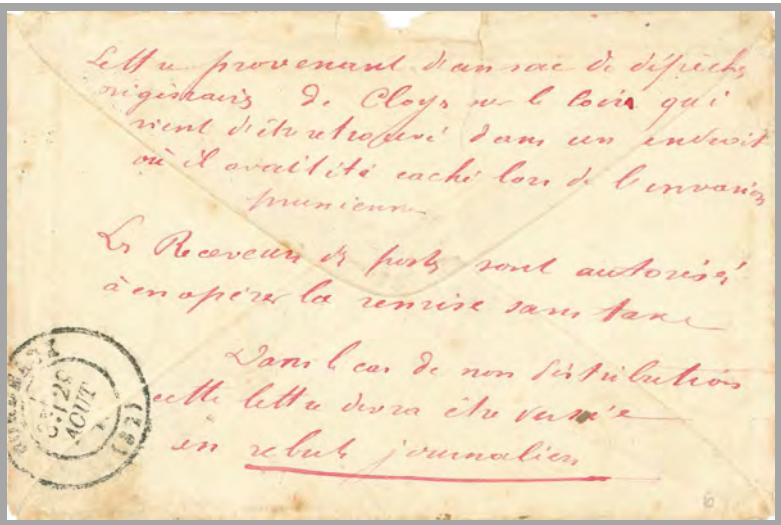 Lettre provenant d'un sac de dépêches
originaire de Cloys sur le Loir qui
vient d'être retrouvé dans un endroit
où il avait été caché lors de l'invasion
prussienne
Les Receveurs des postes sont autorisés
à en opérer la remise sans taxe
Dans le cas de non distribution
cette lettre devra être versée
en rebuts journaliers
BORDEAUX
28
AOUT
(32)
6